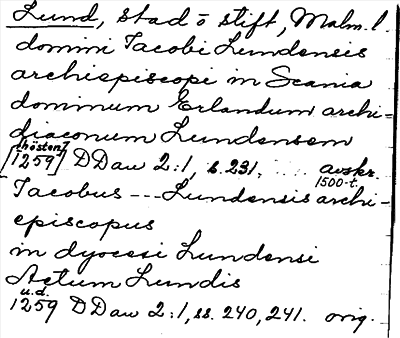 Lund, stad o stift, Malm. l.
domini Jacobi Lundensis
archiepiscopi in Scania
dominum Erlandum archi=
diaconum Lundensem
[hösten]
[1259] DDan 2:1, s. 231, .... avskr.
1500-t.
Jacobus --- Lundensis archi-
episcopus
in dyocesi Lundensi
Actum Lundis
u.d.
1259 DDan 2:1, ss. 240, 241. orig.